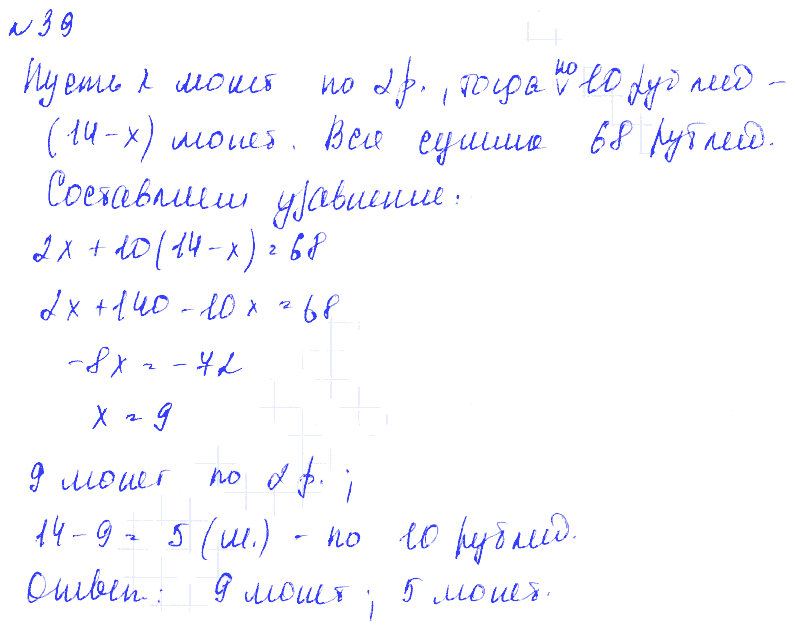 №39
Пусть x монет по 2р., тогда по 10 рублей –
(14-x) монет. Вся сумма 68 рублей.
Составляем уравнение:
2x + 10(14-x) = 68
2x + 140 - 10x = 68
-8x = -72
x = 9
9 монет по 2 р.;
14 - 9 = 5 (м.) - по 10 рублей.
Ответ: 9 монет; 5 монет.